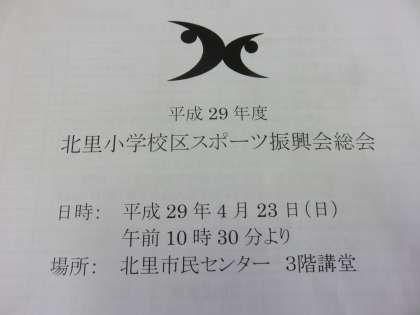 平成 29 年度
北里小学校区スポーツ振興会総会
日時： 平成 29 年 4 月 23 日（日）
午前 10 時 30 分より
場所： 北里市民センター 3階講堂